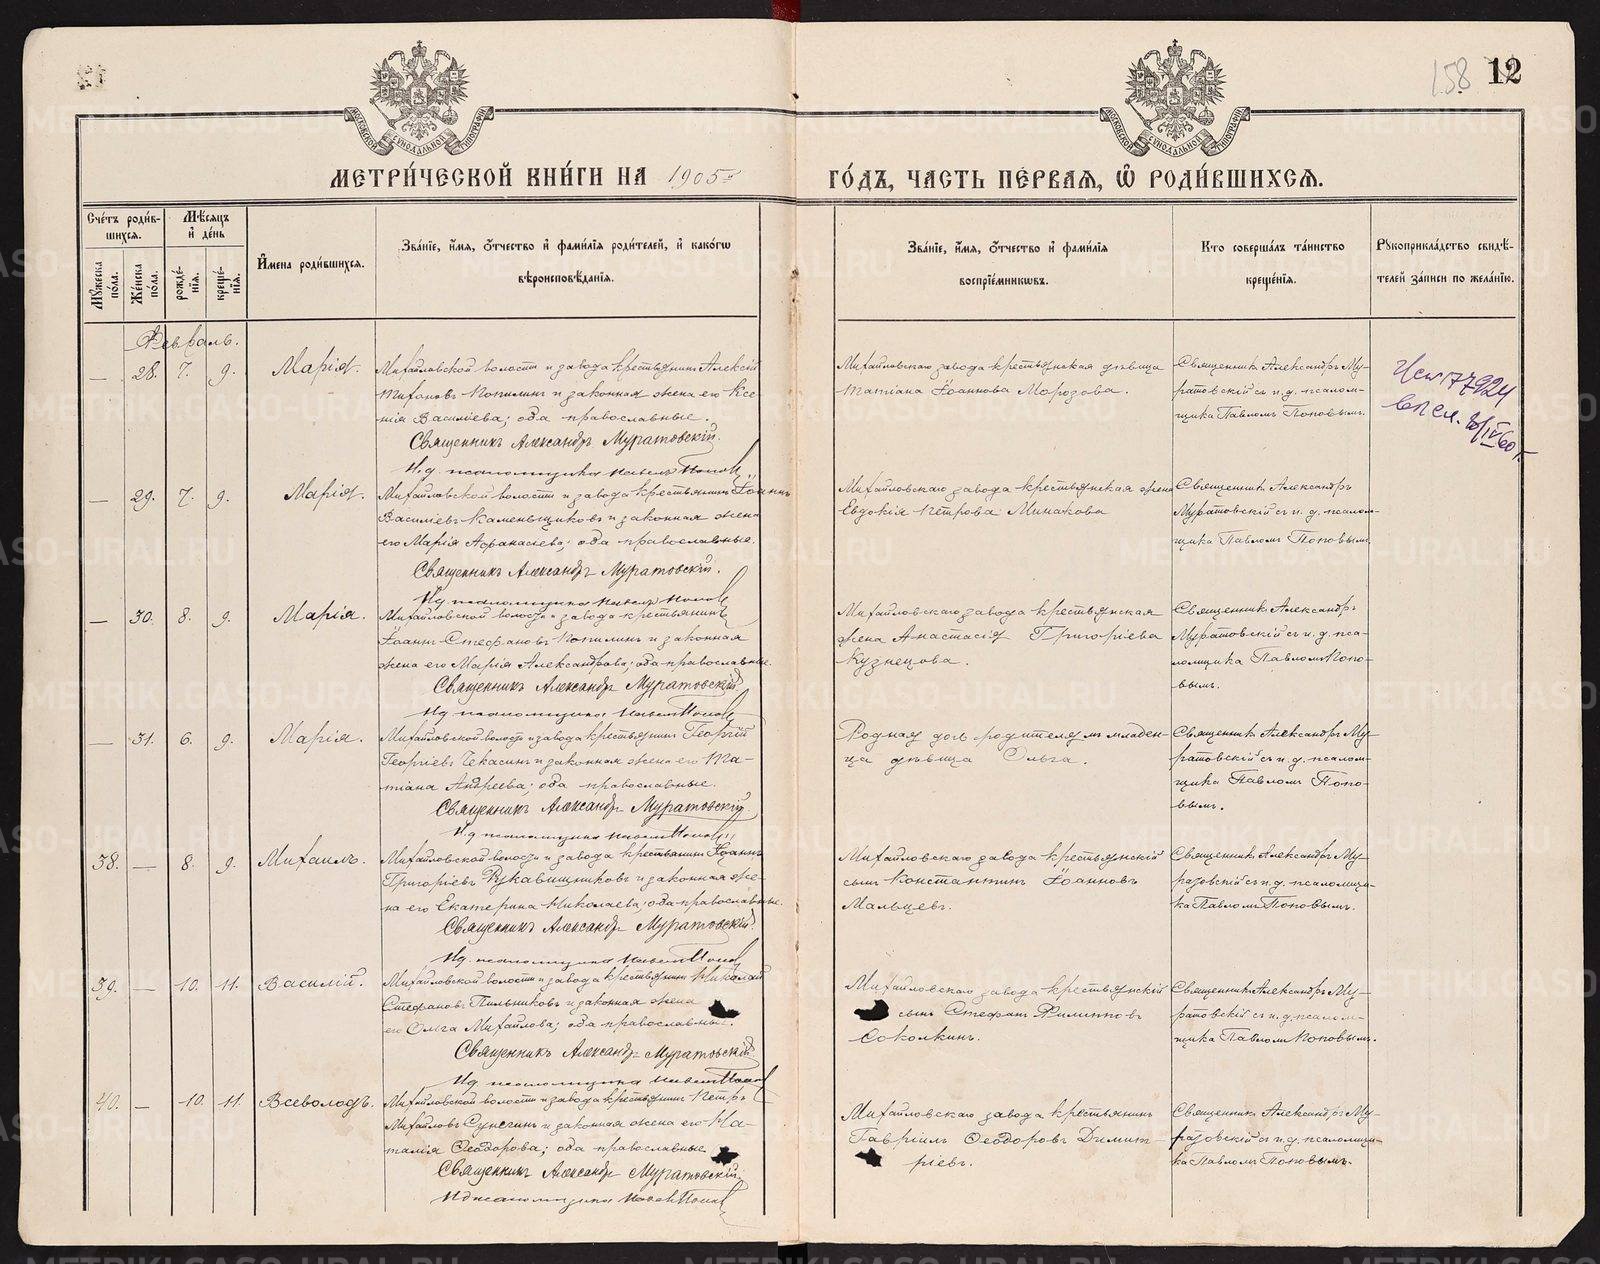 158 12
МОСКОВСКОЙ СѴНОДАЛЬНОЙ ТИПОГРАФІИ
МОСКОВСКОЙ СѴНОДАЛЬНОЙ ТИПОГРАФІИ
МЕТРИ́ЧЕСКОЙ КНИ́ГИ НА 1905й ГО́ДЪ, ЧАСТЬ ПЕ́РВАѦ, Ѡ РОДИ́ВШИХСѦ.
Сче́тъ роди́в-
шихсѧ.
Мѣ́сѧцъ
и де́нь
Мꙋ́жеска по́ла.
Же́нска по́ла.
рожде́-
нїѧ.
креще́-
нїѧ.
И́мена роди́вшихсѧ.
Зва́нїе, и́мѧ, ѻ́тчество и фами́лїѧ роди́телей, и како́гѡ
вѣроисповѣ́данїѧ.
Зва́нїе, и́мѧ, ѻ́тчество и фами́лїѧ
воспрїе́мникѡвъ.
Кто соверша́лъ та́инство
креще́нїѧ.
Рꙋкоприкла́дство свидѣ́-
телей за́писи по жела́нїю.
Февраль.
— 28. 7. 9. Марія.
Михайловской волости и завода крестьянинъ Алексій
Тихоновъ Копилинъ и законная жена его Ксе
нія Василіева; оба православные.
Священникъ Александръ Муратовскій.
И.д. псаломщика Павелъ Поповъ
Михайловскаго завода крестьянская дѣвица
Татіана Іоаннова Морозова.
Священникъ Александръ Му-
ратовскій съ и. д. псалом-
щика Павломъ Поповымъ.
— 29. 7. 9. Марія.
Михайловской волости и завода крестьянинъ Іоаннъ
Василіевъ Каменьщиковъ и законная жена
его Марія Афанасіева; оба православные.
Священникъ Александръ Муратовскій.
Ид псаломщика Павелъ Поповъ
Михайловскаго завода крестьянская жена
Евдокія Петрова Минакова
Священникъ Александръ
Муратовскій съ и. д. псалом-
щика Павломъ Поповымъ.
— 30. 8. 9. Марія.
Михайловской волости и завода крестьянинъ
Іоаннъ Стефановъ Копилинъ и законная
жена его Марія Александрова; оба православные.
Священникъ Александръ Муратовскій
Ид псаломщика Павелъ Поповъ
Михайловскаго завода крестьянская
жена Анастасія Григоріева
Кузнецова.
Священникъ Александръ
Муратовскій съ и. д. пса-
ломщика Павломъ Попо-
вымъ.
— 31. 6. 9. Марія.
Михайловской волости и завода крестьянинъ Георгій
Георгіевъ Чекасинъ и законная жена его Та-
тіана Андреева; оба православные.
Священникъ Александръ Муратовскій
И.д псаломщика Павелъ Поповъ
Родная дочь родителямъ младен-
ца дѣвица Ольга.
Священникъ Александръ Му-
ратовскій съ и. д. псалом-
щика Павломъ Попо-
вымъ.
38. — 8. 9. Михаилъ.
Михайловской волости и завода крестьянинъ Іоаннъ
Григоріевъ Рукавишниковъ и законная же-
на его Екатерина Николаева; оба православные.
Священникъ Александръ Муратовскій.
Ид. псаломщика Павелъ Поповъ
Михайловскаго завода крестьянскій
сынъ Константинъ Іоанновъ
Мальцевъ.
Священникъ Александръ Му-
ратовскій съ и. д. псаломщи-
ка Павломъ Поповымъ.
39. — 10. 11. Василій.
Михайловской волости и завода крестьянинъ Николай
Стефановъ Пильниковъ и законная жена
его Ольга Михайлова; оба православные.
Священникъ Александръ Муратовскій
Ид. псаломщика Павелъ Поповъ
Михайловскаго завода крестьянскій
сынъ Стефанъ Филиповъ
Соколкинъ.
Священникъ Александръ Му-
ратовскій съ и. д. псалом-
щика Павломъ Поповымъ.
40. — 10. 11. Всеволодъ.
Михайловской волости и завода крестьянинъ Петръ
Михайловъ Сунегинъ и законная жена его На-
талія Ѳеодорова; оба православные
Священникъ Александръ Муратовскій
Ид псаломщика Павелъ Поповъ
Михайловскаго завода крестьянинъ
Гавріилъ Ѳеодоровъ Димит-
ріевъ.
Священникъ Александръ Му-
ратовскій съ и. д. псаломщи-
ка Павломъ Поповымъ.
METRIKI.GASO-URAL.RU